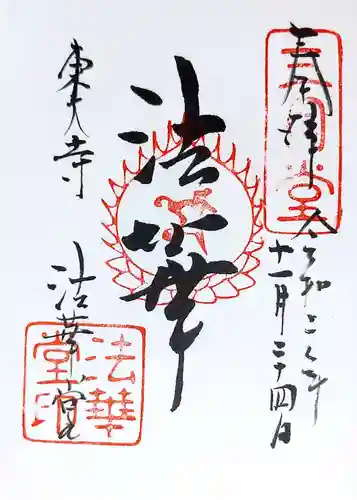 奉拝
三月堂
令和二年
十一月二十四日
法華
東大寺
法華堂
法華堂印